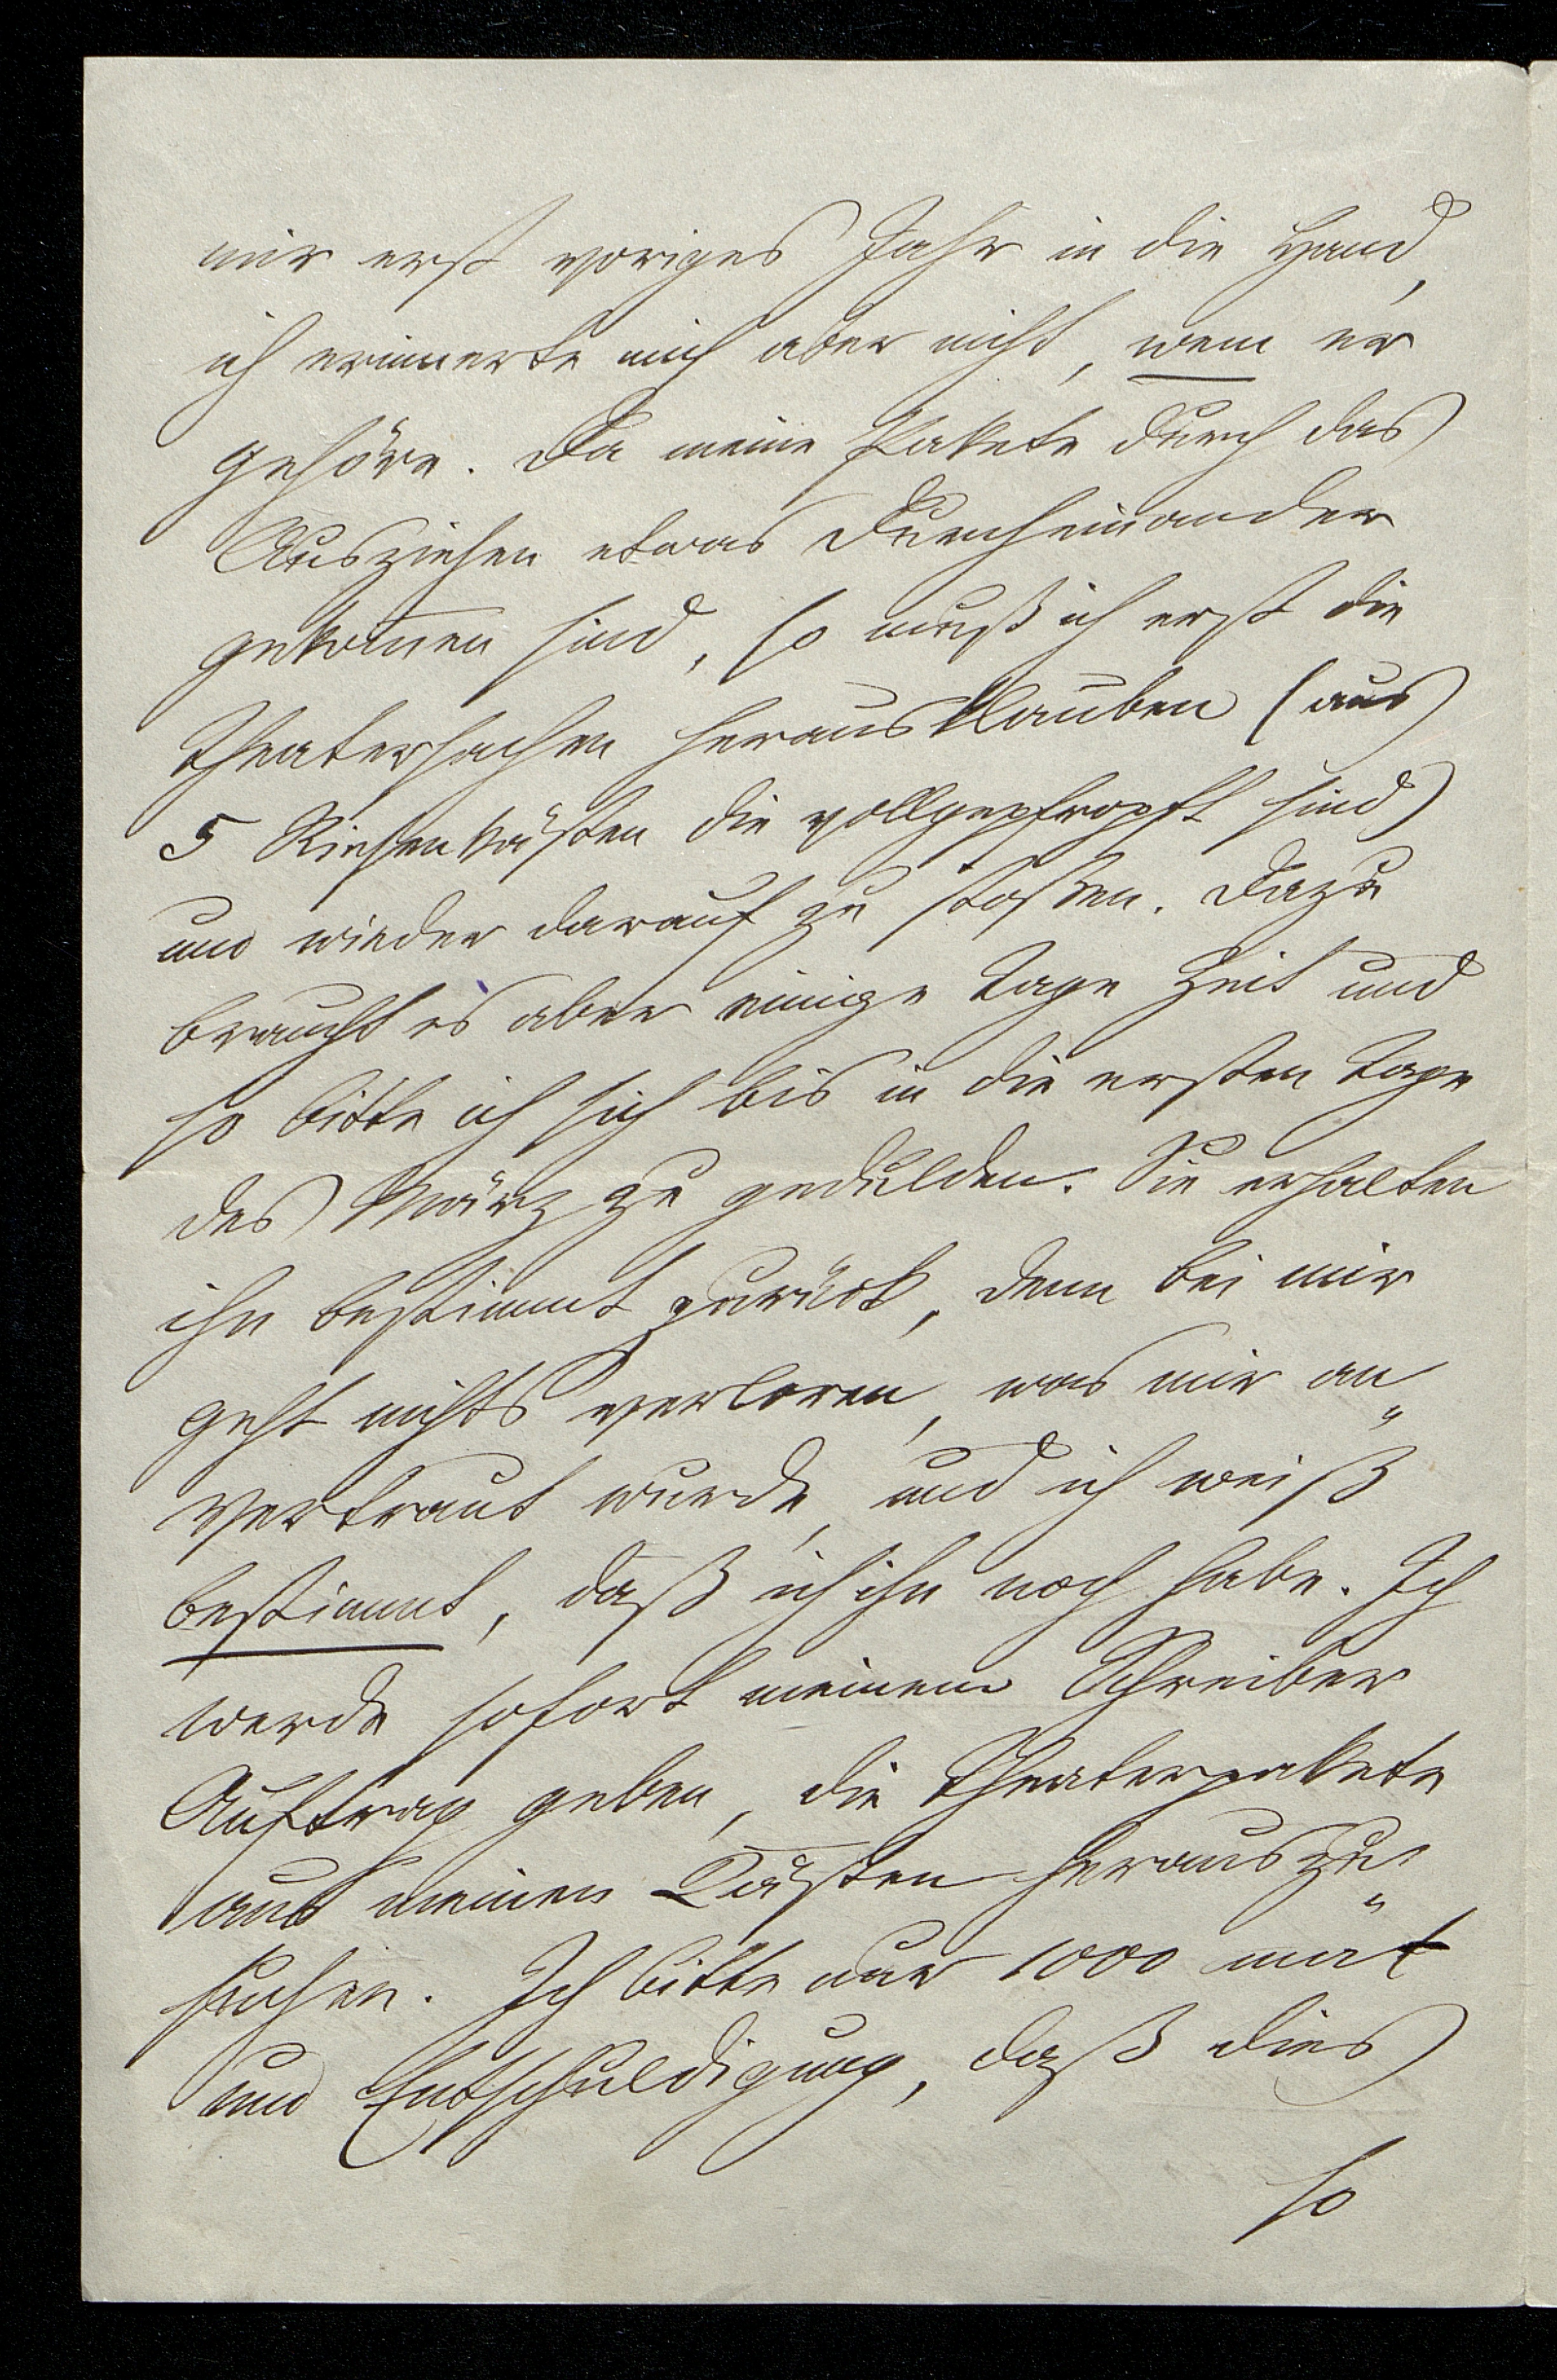 mir erst voriges Jahr in die Hand,
ich erinnerte mich aber nicht, wem er
gehöre. Da meine Pakete durch das
Ausziehen etwas durcheinander
gekom̅en sind, so muß ich erst die
Theatersachen herausklauben (aus
5 Riesenkästen die vollgepfropft sind)
um wieder darauf zu stoßen. Dazu
braucht es aber einige Tage Zeit und
so bitte ich sich bis in die ersten Tage
des März zu gedulden. Sie erhalten
ihn bestimmt zurück, denn bei mir
geht nichts verloren, was mir an„
vertraut wurde, und ich weiß
bestimmt, daß ich ihn noch habe. Ich
werde sofort meinem Schreiber
Auftrag geben, die Theaterpakete
aus meinen Kästen herauszu„
suchen. Ich bitte nur 1000 mal
um Entschuldigung, daß dies
so